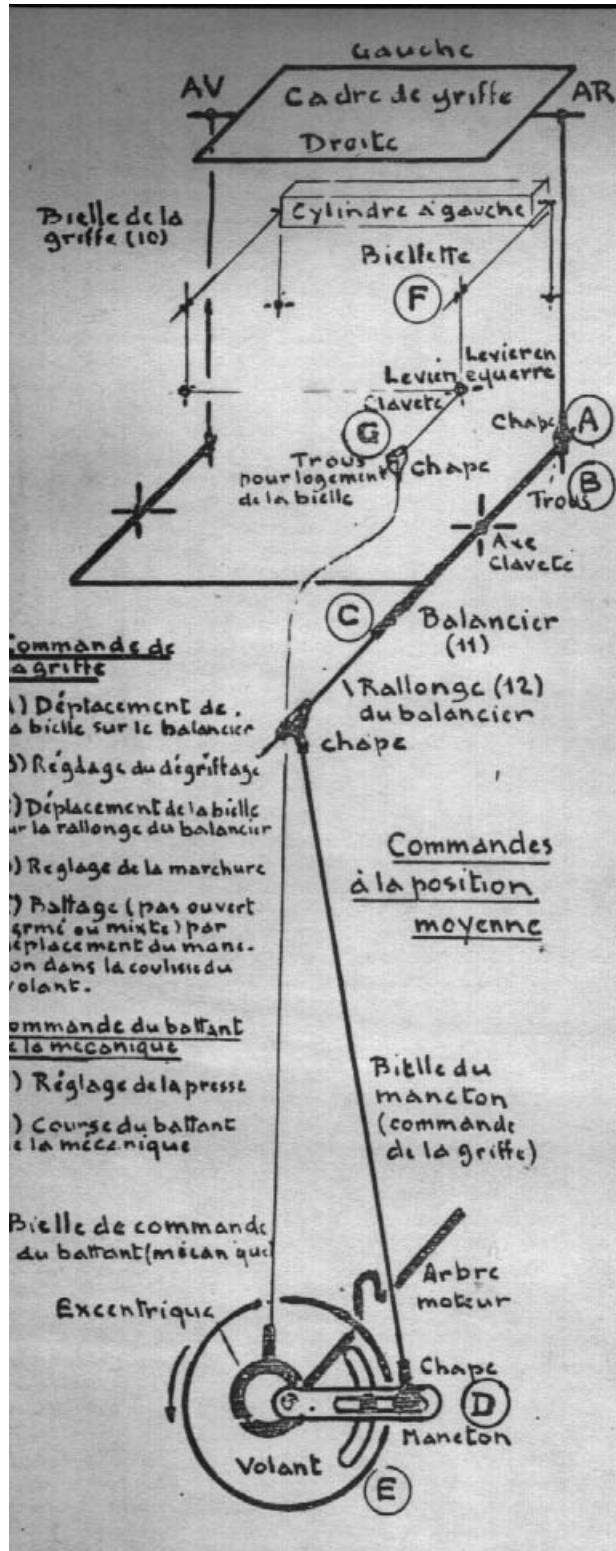 Gauche
AV
Cadre de griffe
AR
Droite
Bielle de la
griffe (10)
Cylindre à gauche
Bielfette
F
Levier en
Levier equerre
Clavete
G
Chape
A
Trous
pour logement
de la bielle
Chape
Trous
B
Axe
Claveté
C
Balancier
(11)
Rallonge (12)
du balancier
chape
Commande de
la griffe
) Déplacement de
la bielle sur le balancier
) Réglage du dégriffage
) Déplacement de la bielle
ur la rallonge du balancier
) Reglage de la marchure
) Battage (pas ouvert
ermé ou mixte) par
éplacement du mane-
on dans la coulisse du
volant.
ommande du battant
e la mécanique
) Réglage de la presse
) Course du battant
e la mécanique
Commandes
à la position
moyenne
Bielle du
maneton
(commande
de la griffe)
Bielle de commande
du battant (mécanique)
Excentrique
Arbre
moteur
Chape
D
Maneton
Volant
E